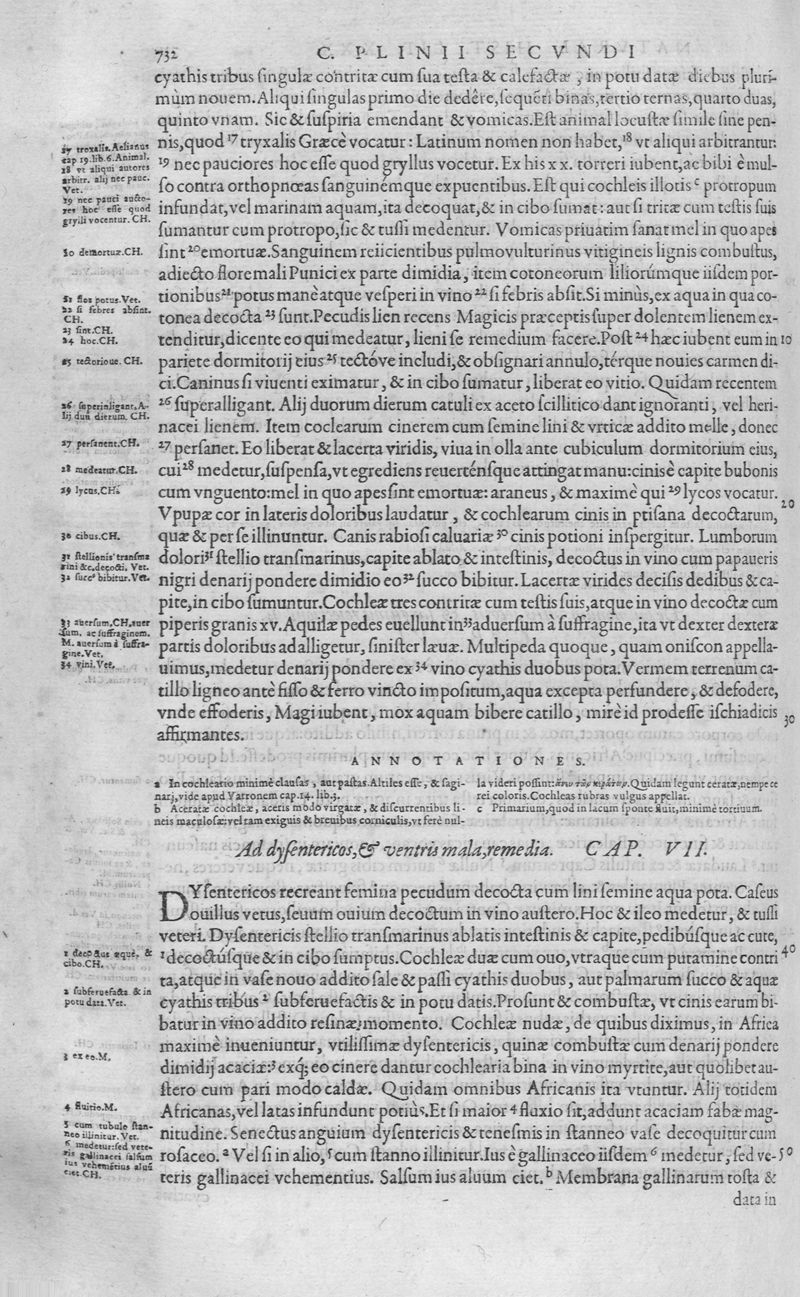 732
C. PLINII SECVNDI
cyathis tribus singulæ contritæ cum sua testa & calefactæ, in potu datæ diebus pluri-
mùm nouem. Aliqui singulas primo die dedêre, sequẽti binas, tertio ternas, quarto duas,
quinto vnam. Sic & suspiria emendant & vomicas. Est animal locustæ simile sine pen-
nis, quod 17 tryxalis Græcè vocatur: Latinum nomen non habet, 18 vt aliqui arbitrantur.
19 nec pauciores hoc esse quod gryllus vocetur. Ex his x x. torreri iubent, ac bibi è mul-
so contra orthopnœas sanguinémque expuentibus. Est qui cochleis illotis c protropum
infundat, vel marinam aquam, ita decoquat, & in cibo sumat: aut si tritæ cum testis suis
sumantur cum protropo, sic & tussi medentur. Vomicas priuatim sanat mel in quo apes
sint 20 emortuæ. Sanguinem reiicientibus pulmo vulturinus vitigineis lignis combustus,
adiecto flore mali Punici ex parte dimidia, item cotoneorum liliorúmque iisdem por-
tionibus 21 potus manè atque vesperi in vino 22 si febris absit. Si minùs, ex aqua in qua co-
tonea decocta 23 sunt. Pecudis lien recens Magicis præceptis super dolentem lienem ex-
tenditur, dicente eo qui medeatur, lieni se remedium facere. Post 24 hæc iubent eum in 10
pariete dormitorij eius 25 tectóve includi, & obsignari annulo, térque nouies carmen di-
ci. Caninus si viuenti eximatur, & in cibo sumatur, liberat eo vitio. Quidam recentem
26 superalligant. Alij duorum dierum catuli ex aceto scillitico dant ignoranti, vel heri-
nacei lienem. Item coclearum cinerem cum semine lini & vrticæ addito melle, donec
27 persanet. Eo liberat & lacerta viridis, viua in olla ante cubiculum dormitorium eius,
cui 28 medetur, suspensa, vt egrediens reuerténsque attingat manu: cinis è capite bubonis
cum vnguento: mel in quo apes sint emortuæ: araneus, & maximè qui 29 lycos vocatur.
Vpupæ cor in lateris doloribus laudatur, & cochlearum cinis in ptisana decoctarum, 20
quæ & per se illinuntur. Canis rabiosi caluariæ 30 cinis potioni inspergitur. Lumborum
dolori 31 stellio transmarinus, capite ablato & intestinis, decoctus in vino cum papaueris
nigri denarij pondere dimidio eo 32 succo bibitur. Lacertæ virides decisis dedibus & ca-
pite, in cibo sumuntur. Cochleæ tres contritæ cum testis suis, atque in vino decoctæ cum
piperis granis xv. Aquilæ pedes euellunt in 33 aduersum à suffragine, ita vt dexter dexteræ
partis doloribus adalligetur, sinister læuæ. Multipeda quoque, quam oniscon appella-
uimus, medetur denarij pondere ex 34 vino cyathis duobus pota. Vermem terrenum ca-
tillo ligneo antè fisso & ferro vincto impositum, aqua excepta perfundere, & defodere,
vnde effoderis, Magi iubent, mox aquam bibere catillo, mirè id prodesse ischiadicis 30
affirmantes.
17 troxalis. Aelianus
cap 19. lib. 6. Animal.
18 vt aliqui autores
arbitr. alij nec pauc.
Vet.
19 nec pauci aucto-
res hoc esse quod
grylli vocentur. CH.
20 demortuæ. CH.
21 flos potus. Vet.
22 si febres absint.
CH.
23 sint. CH.
24 hoc. CH.
25 tectorioue. CH.
26 superinligant. A-
lij duũ dierum. CH.
27 persanent. CH.
28 medeatur. CH.
29 lycus. CH.
30 cibus. CH.
31 stellionis transma
rini &c. decocti. Vet.
32 succ9 bibitur. Vet.
33 auersum. CH. auer
sum. ac suffraginem.
M. auersum à suffra-
gine. Vet.
34 vini. Vet.
ANNOTATIONES.
a In cochleario minimè clausas, aut pastas. Altiles esse, & sagi-
narj, vide apud Varronem cap. 14. lib. 3.
b Aceratæ cochleæ, aceris modo virgatæ, & discurrentibus li-
neis maculosæ: vel tam exiguis & breuibus corniculis, vt ferè nul-
la videri possint: Quidam legunt ceratæ, nempe ce
rei coloris. Cochleas rubras vulgus appellat.
c Primarium, quod in lacum sponte fluit, minimè tortiuum.
Ad dysentericos, & ventris mala, remedia. CAP. VII.
DYsentericos recreant femina pecudum decocta cum lini semine aqua pota. Caseus
ouillus vetus, seuum ouium decoctum in vino austero. Hoc & ileo medetur, & tussi
veteri. Dysentericis stellio transmarinus ablatis intestinis & capite, pedibúsque ac cute,
1 decoctúsque & in cibo sumptus. Cochleæ duæ cum ouo, vtraque cum putamine contri 40
ta, atque in vase nouo addito sale & passi cyathis duobus, aut palmarum succo & aquæ
cyathis tribus 2 subferuefactis & in potu datis. Prosunt & combustæ, vt cinis earum bi-
batur in vino addito resinæ momento. Cochleæ nudæ, de quibus diximus, in Africa
maximè inueniuntur, vtilissimæ dysentericis, quinæ combustæ cum denarij pondere
dimidij acaciæ: 3 exq́; eo cinere dantur cochlearia bina in vino myrtite, aut quolibet au-
stero cum pari modo caldæ. Quidam omnibus Africanis ita vtuntur. Alij totidem
Africanas, vel latas infundunt potiùs. Et si maior 4 fluxio sit, addunt acaciam fabæ mag-
nitudine. Senectus anguium dysentericis & tenesmis in stanneo vase decoquitur cum
rosaceo. a Vel si in alio, 5 cum stanno illinitur. Ius è gallinaceo iisdem 6 medetur, sed ve- 50
teris gallinacei vehementius. Salsum ius aluum ciet. b Membrana gallinarum tosta &
data in
1 decoctus æquè, &
cibo. CH.
2 subferuefacta & in
potu data. Vet.
3 ex eo. M.
4 fluitio. M.
5 cum tubulo stan-
neo illinitur. Vet.
6 medetur: sed vete-
ris gallinacei salsum
ius vehemẽtius aluũ
ciet. CH.